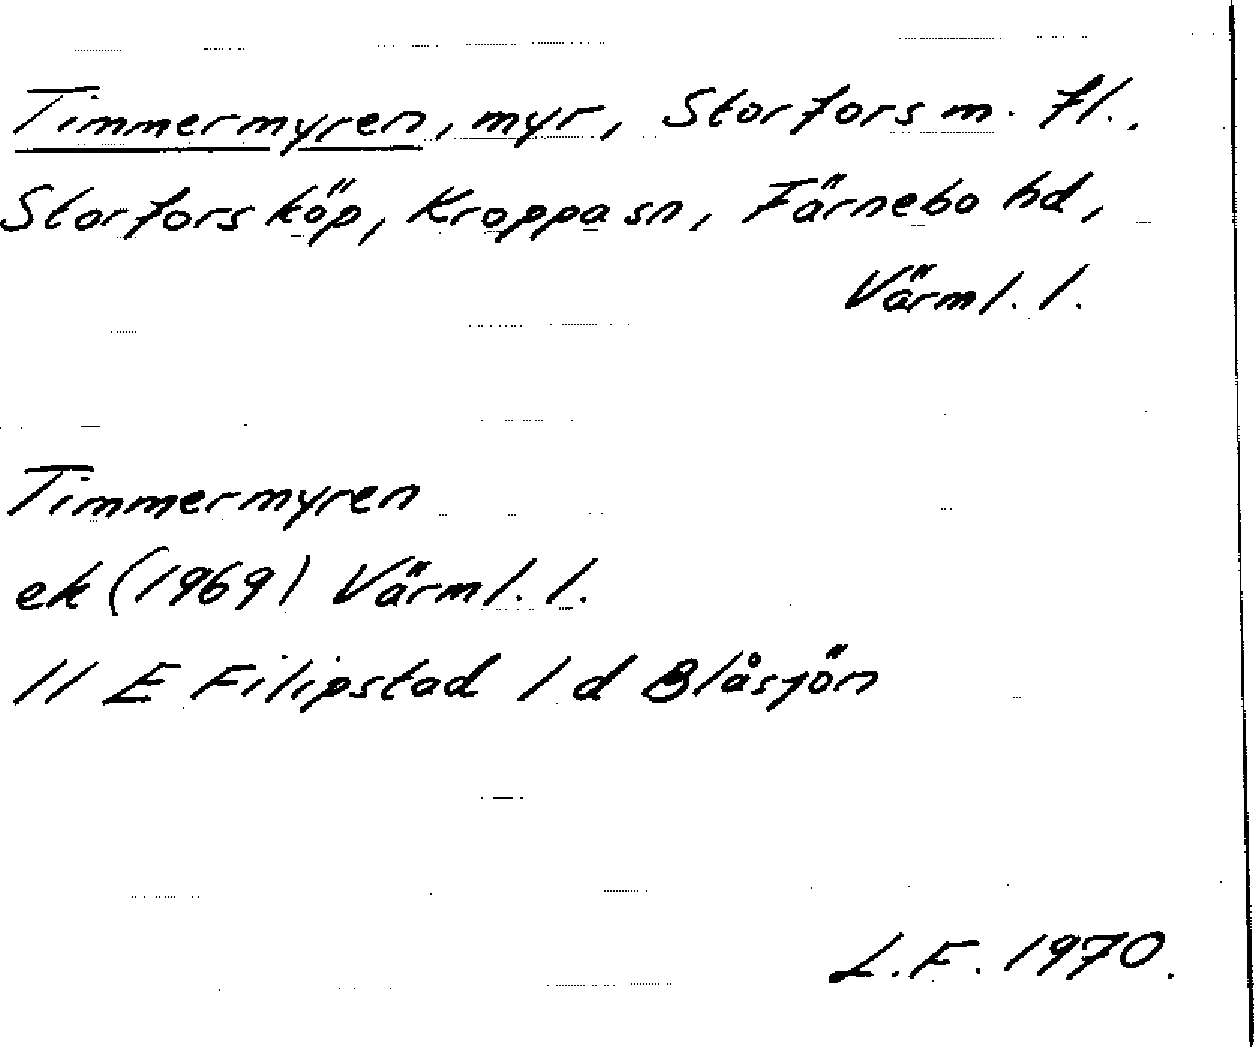 Timmermyren, myr, Storfors m. fl.,
Storfors köp, Kroppa sn, Färnebo hd,
Värml. l.
Timmermyren
ek (1969) Värml. l.
11 E Filipstad 1 d Blåsjön
L.F. 1970.